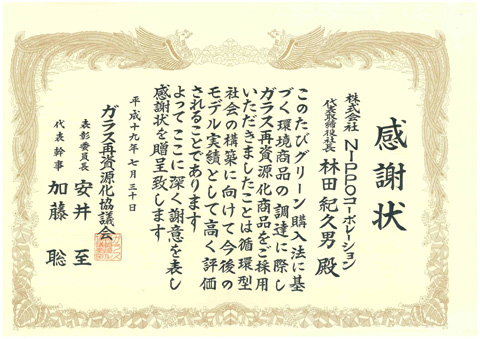 感謝状
株式会社 NIPPOコーポレーション
代表取締役社長 林田紀久男 殿
このたびグリーン購入法に基
づく環境商品の調達に際し
ガラス再資源化商品をご採用
いただきましたことは循環型
社会の構築に向けて今後の
モデル実績として高く評価
されることであります
よってここに深く謝意を表し
感謝状を贈呈致します
平成十九年七月三十日
ガラス再資源化協議会
表彰委員長 安井 至
代表幹事 加藤 聡